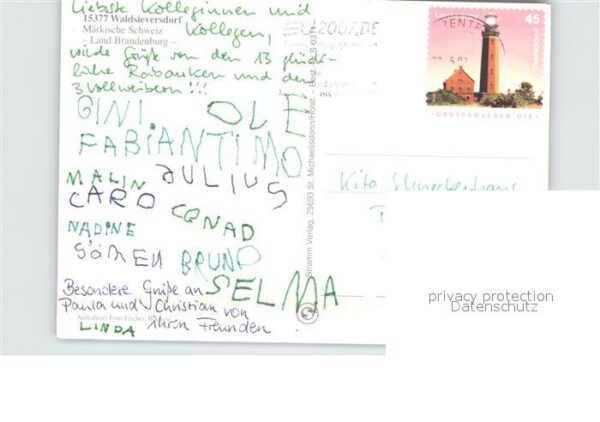 15377 Waldsieversdorf
Märkische Schweiz
– Land Brandenburg –
Liebste Kolleginnen und
Kollegen,
wilde Grüße von den 13 glück-
lichen Rabauken und den
3 Vollweibern!!!
GINI OLE
FABIAN TIMO
MALIN JULIUS
CARO CONAD
NADINE
SÖREN BRUNO
SELMA
Besondere Grüße an
Paula und Christian von
ihren Freunden
LINDA
Aufnahme: Foto Fischer,
Stramm Verlag, 25693 St. Michaelisdonn/Holst. – Best.-Nr.
2007.DE
ZENTR
45
GREIFSWALDER OIE
Kita
privacy protection
Datenschutz